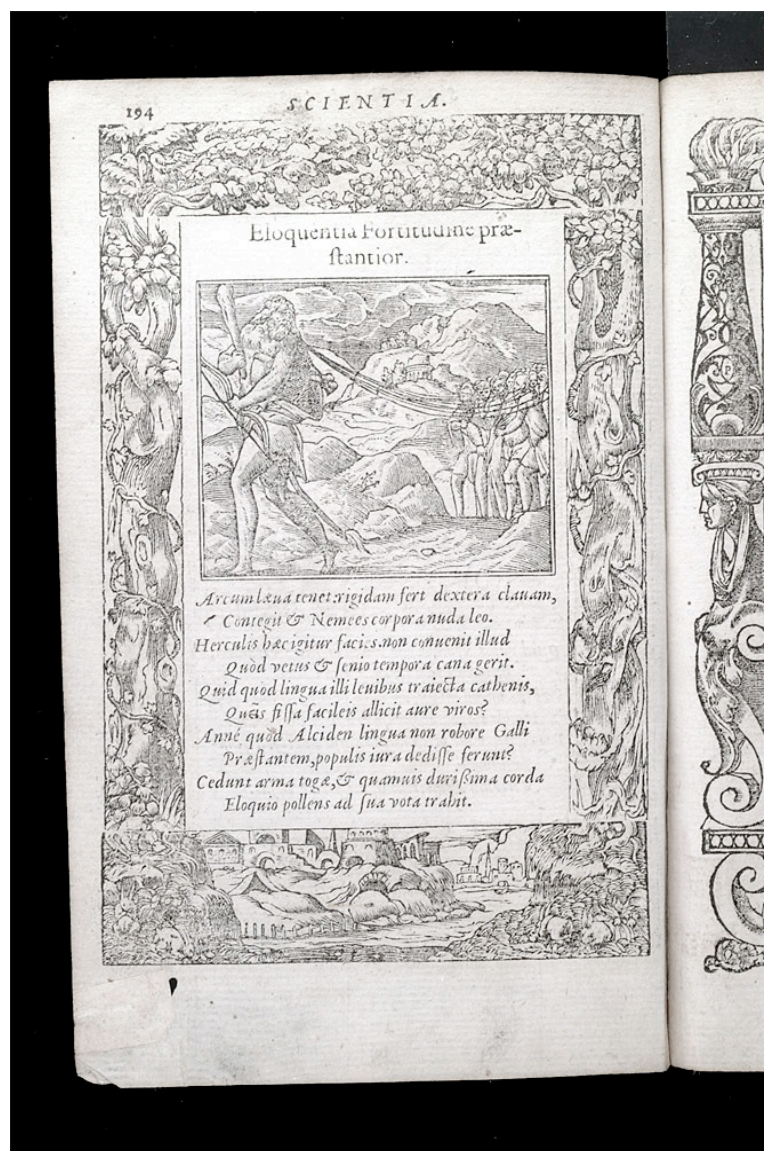 194
SCIENTIA.
Eloquentia Fortitudine præ-
ſtantior.
Arcum læua tenet: rigidam fert dextera clauam,
Contegit & Nemees corpora nuda leo.
Herculis hæc igitur facies. non conuenit illud
Quòd vetus & ſenio tempora cana gerit.
Quid quòd lingua illi leuibus traiecta cathenis,
Queîs fiſſa facileis allicit aure viros?
Anné quòd Alciden lingua non robore Galli
Præſtantem, populis iura dediſſe ferunt?
Cedunt arma togæ, & quamuis durißima corda
Eloquio pollens ad ſua vota trahit.